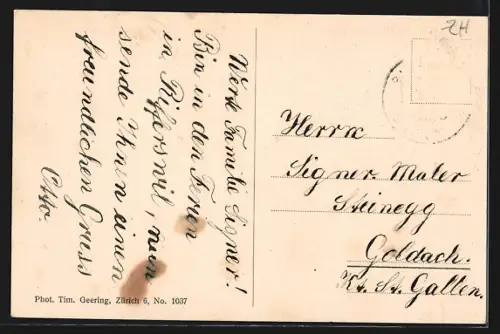 ZH
Werte Familie Signer!
Bin in den Ferien
in Rifferswil,
sende Ihnen einen
freundlichen Gruss
Otto.
Herrn
Signer Maler
Steinegg
Goldach.
Kt. St. Gallen.
Phot. Tim. Geering, Zürich 6, No. 1037